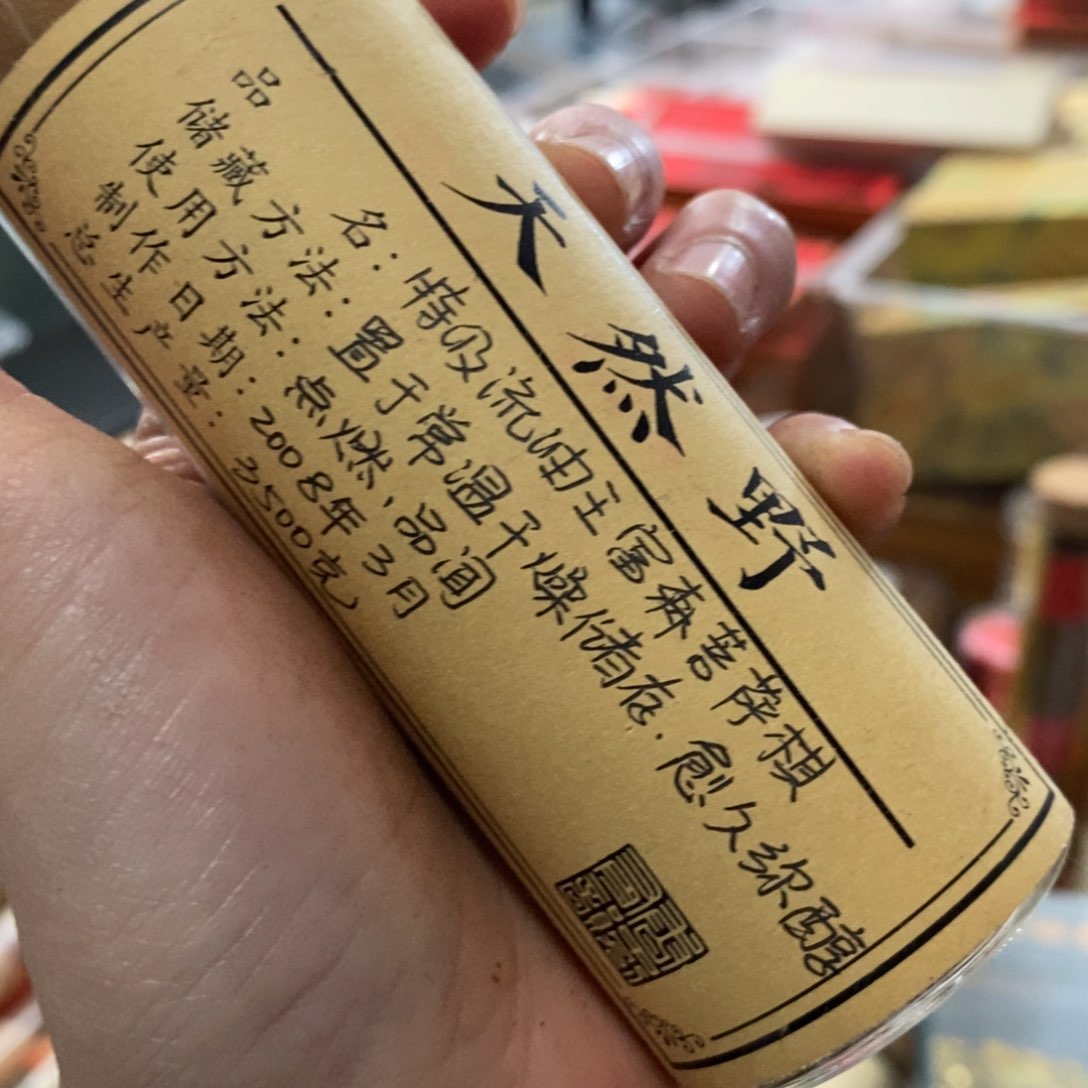 天然野
品 名：特级流油王富森菩萨棋
储藏方法：置于常温干燥储存．愈久弥醇
使用方法：点燃、品闻
制作日期：2008年3月
总生产量：3500克